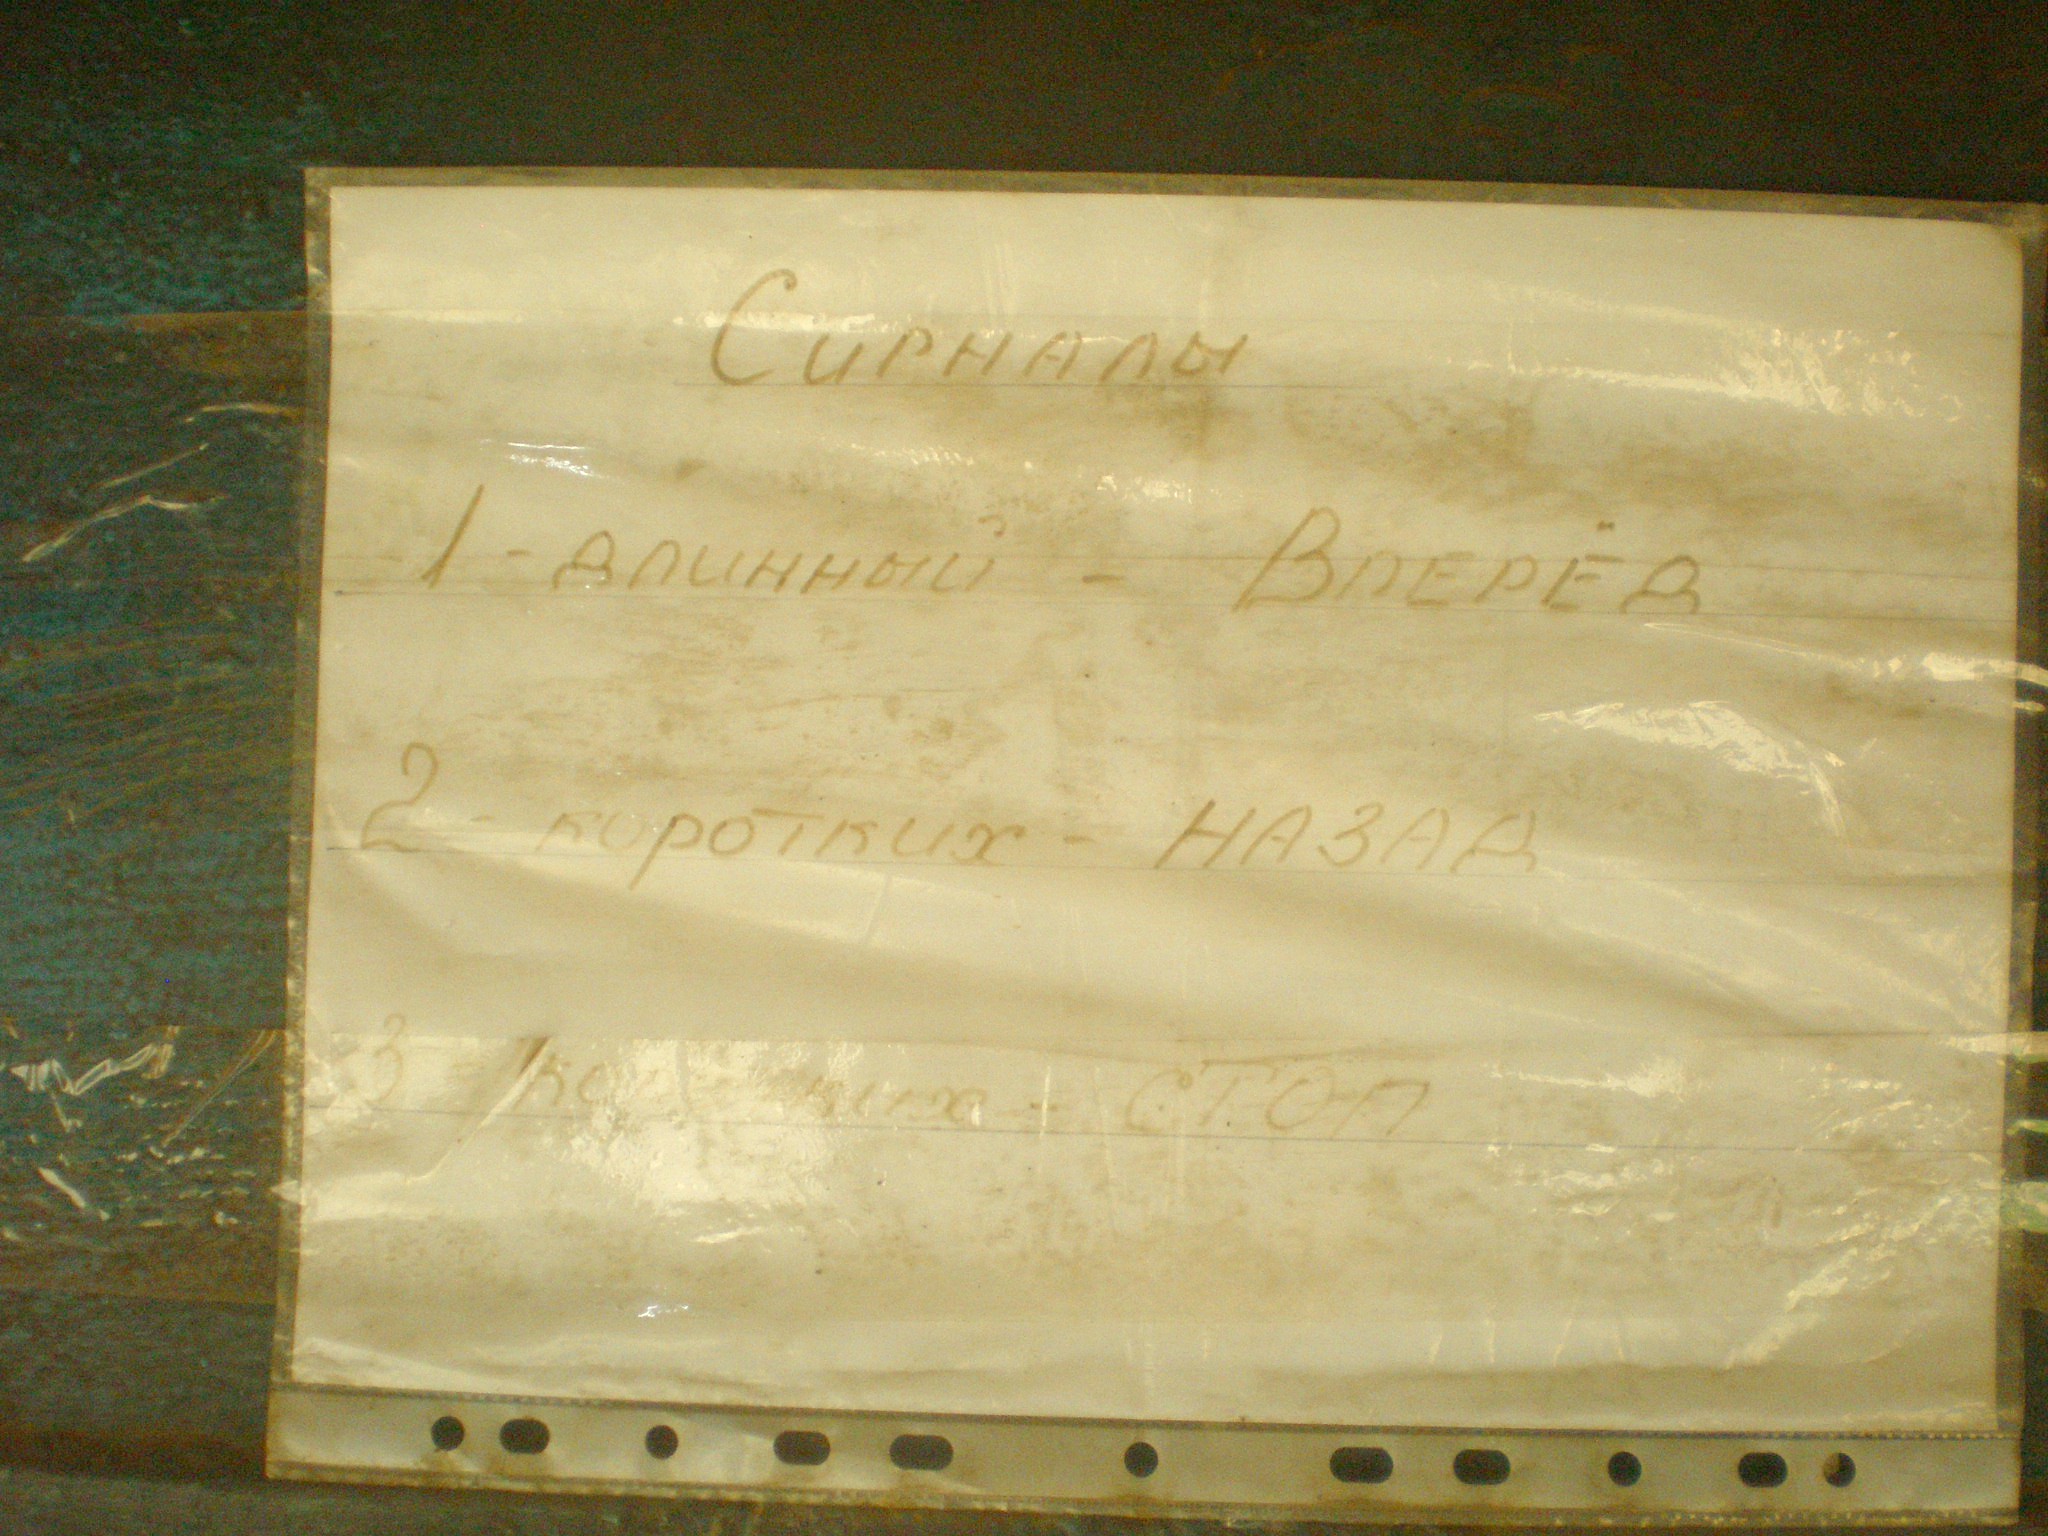 Сигналы
1 - длинный - Вперёд
2 - коротких - НАЗАД
3 - коротких - СТОП